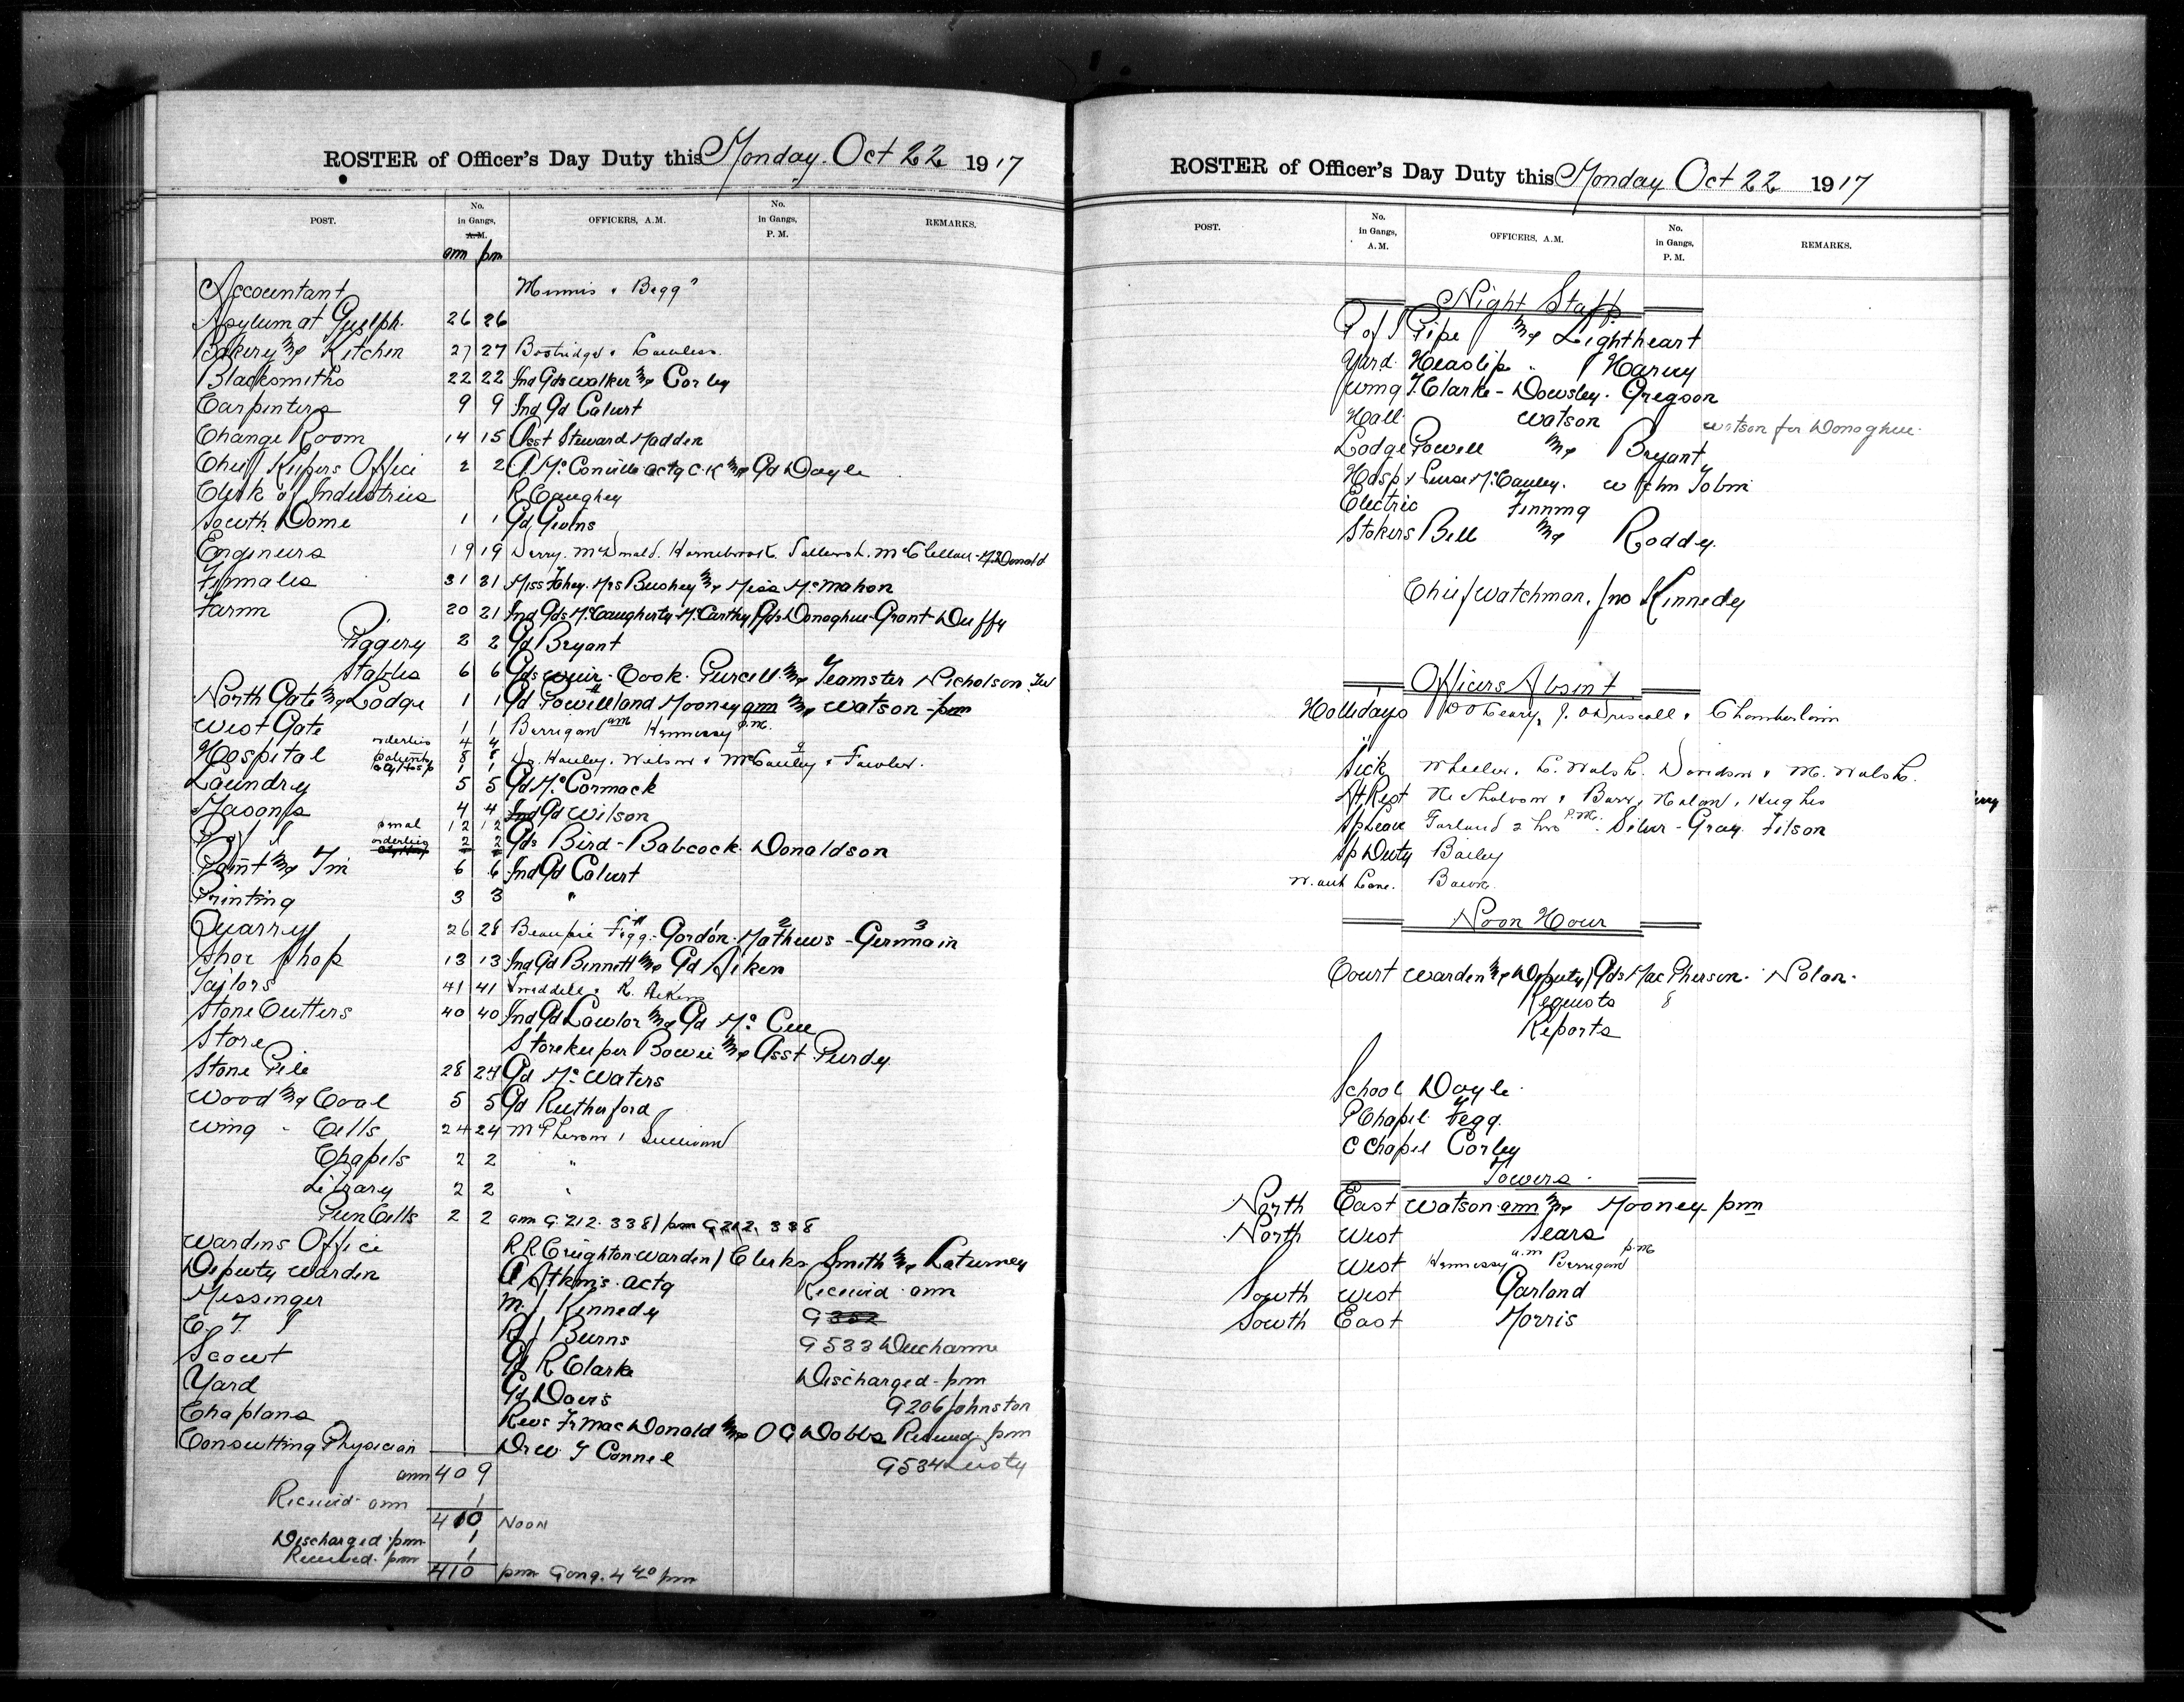 ROSTER of Officer's Day Duty this Monday. Oct 22 1917
POST. No. in Gangs, A.M. OFFICERS, A.M. No. in Gangs, P.M. REMARKS.
am pm
Accountant Minnis & Begg
Asylum at Guelph. 26 26
Bakery and Kitchen 27 27 Bostridge &
Blacksmiths 22 22 Ind Gds Walker and Corby
Carpenters 9 9 Ind Gd Calvert
Change Room 14 15 Asst Steward Madden
Chief Kepers Office 2 2 A. McConville actg C.K and Gd Doyle
Clerk of Industries R Caughey
South Dome 1 1 Gd Givens
Engineers 19 19 Derry. McDonald. Hornebrook. McClellan - McDonald
Females 31 31 Miss Fahey. Mrs Bushey and Miss McMahon
Farm 20 21 Ind Gds McCaugherty - McCarthy / Gds Donoghue - Grant - Duffy
Piggery 2 2 Gd Bryant
Stables 6 6 Gds Weir - Cook. Purcell and Teamster Nicholson
North Gate and Lodge 1 1 Gd Powell and Mooney am and Watson - pm
West Gate 1 1 Berrigan am Hennessy p.m.
Hospital orderlies 4 4
patients 8 8 Dr. Hanley. Wilson & McCauley & Fowler.
1 1
Laundry 5 5 Gd McCormack
Masons 4 4 Ind Gd Wilson
P of I 12 12
orderlies 2 2 Gds Bird - Babcock. Donaldson
Paint and Tin 6 6 Ind Gd Calvert
Printing 3 3 "
Quarry 26 28 Beaupre Figg - Gordon - Mathews - Germain
Shoe Shop 13 13 Ind Gd Bennett and Gd Aiken
Tailors 41 41 Tweddell & R. Aiken
Stone Cutters 40 40 Ind Gd Lawlor and Gd McCue
Store Storekeeper Bowie and Asst Purdy
Stone Pile 28 24 Gd McWaters
Wood and Coal 5 5 Gd Rutherford
Wing - Cells 24 24 McPherson & Sullivan
Chapels 2 2 "
Library 2 2 "
Pun Cells 2 2 am G.212. 338 / pm G212. 338
Wardens Office R R Creighton Warden / Clerks Smith and Laturney
Deputy Warden A Atkins. actg Received am
Messenger M. J Kennedy G 352
C. T. I R J Burns G533 Ducharme
Scout Gd R Clarke Discharged - pm
Yard Gd Davis G206 Johnston
Chaplans Revs Fr MacDonald and O G Dobbs Received pm
Consulting Physician Dr W. T Connel G534 Lusty
am 409
Received am 1
410 Noon
Discharged - pm 1
Received - pm 1
410 pm Gong. 4 40 pm
ROSTER of Officer's Day Duty this Monday Oct 22 1917
POST. No. in Gangs, A.M. OFFICERS, A.M. No. in Gangs, P.M. REMARKS.
Night Staff
P of I Pipe and Lightheart
Yard. Heaslip " Harvey
Wing T. Clarke - Dowsley. Gregson
Hall Watson Watson for Donoghue.
Lodge Powell and Bryant
Hosp Nurse McCauley. Wm Tobin
Electric Finning
Stokers Bell and Roddy
Chief Watchman. Jno Kennedy
Officers Absent
Hollidays D O'Leary, J. O'Driscoll & Chamberlain
Sick Wheeler. L. Walsh. Davidson & M. Walsh.
At Rest Nicholson & Barr, Nolan, Hughes
Sp Leave Garland 2 hrs P.M. Silver - Gray. Filson
Sp Duty Bailey
W. out Leave.
Noon Hour
Court Warden and Deputy / Gds MacPherson - Nolan.
Requests 8
Reports
School Doyle.
P Chapel Fegg.
C Chapel Corby
Towers
North East Watson am and Mooney - pm
North West Sears
West Hennessy a.m Berrigan p.m
South West Garland
South East Morris